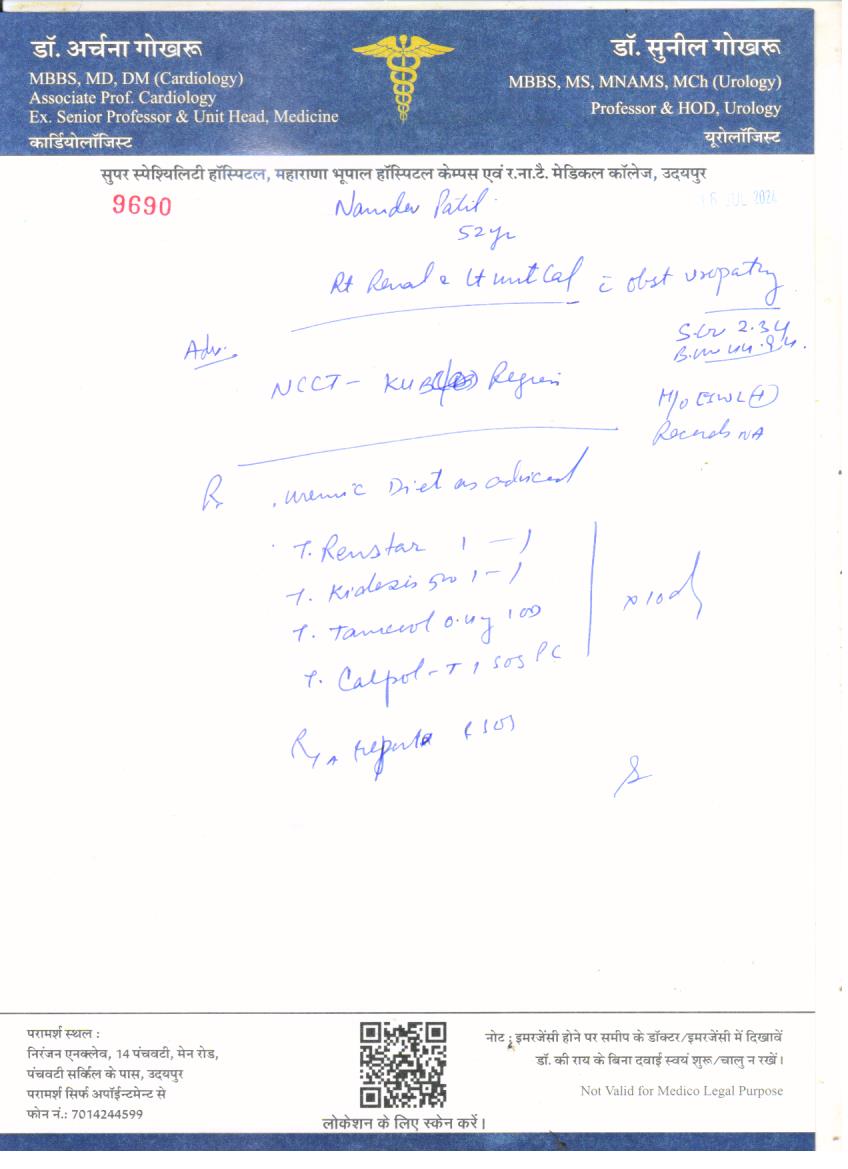 डॉ. अर्चना गोखरू
MBBS, MD, DM (Cardiology)
Associate Prof. Cardiology
Ex. Senior Professor & Unit Head, Medicine
कार्डियोलॉजिस्ट
डॉ. सुनील गोखरू
MBBS, MS, MNAMS, MCh (Urology)
Professor & HOD, Urology
यूरोलॉजिस्ट
सुपर स्पेश्यिलिटी हॉस्पिटल, महाराणा भूपाल हॉस्पिटल केम्पस एवं र.ना.टै. मेडिकल कॉलेज, उदयपुर
9690
JUL 2024
Namdev Patil
52yr
Rt Renal & Lt unt Cal c obst uropathy
S.Cr 2.34
Adv.
NCCT - KUB Region
H/o ESWL (+)
Records NA
R uremic Diet as adviced
T. Renstar 1 - 1
T. Kidezis 500 1 - 1
T. 0.4g 1 OD
T. Calpol-T 1 SOS PC
x 10 d
R/A reports (SOS)
परामर्श स्थल :
निरंजन एनक्लेव, 14 पंचवटी, मेन रोड,
पंचवटी सर्किल के पास, उदयपुर
परामर्श सिर्फ अपॉईन्टमेन्ट से
फोन नं.: 7014244599
लोकेशन के लिए स्केन करें।
नोट : इमरजेंसी होने पर समीप के डॉक्टर/इमरजेंसी में दिखावें
डॉ. की राय के बिना दवाई स्वयं शुरू/चालु न रखें।
Not Valid for Medico Legal Purpose